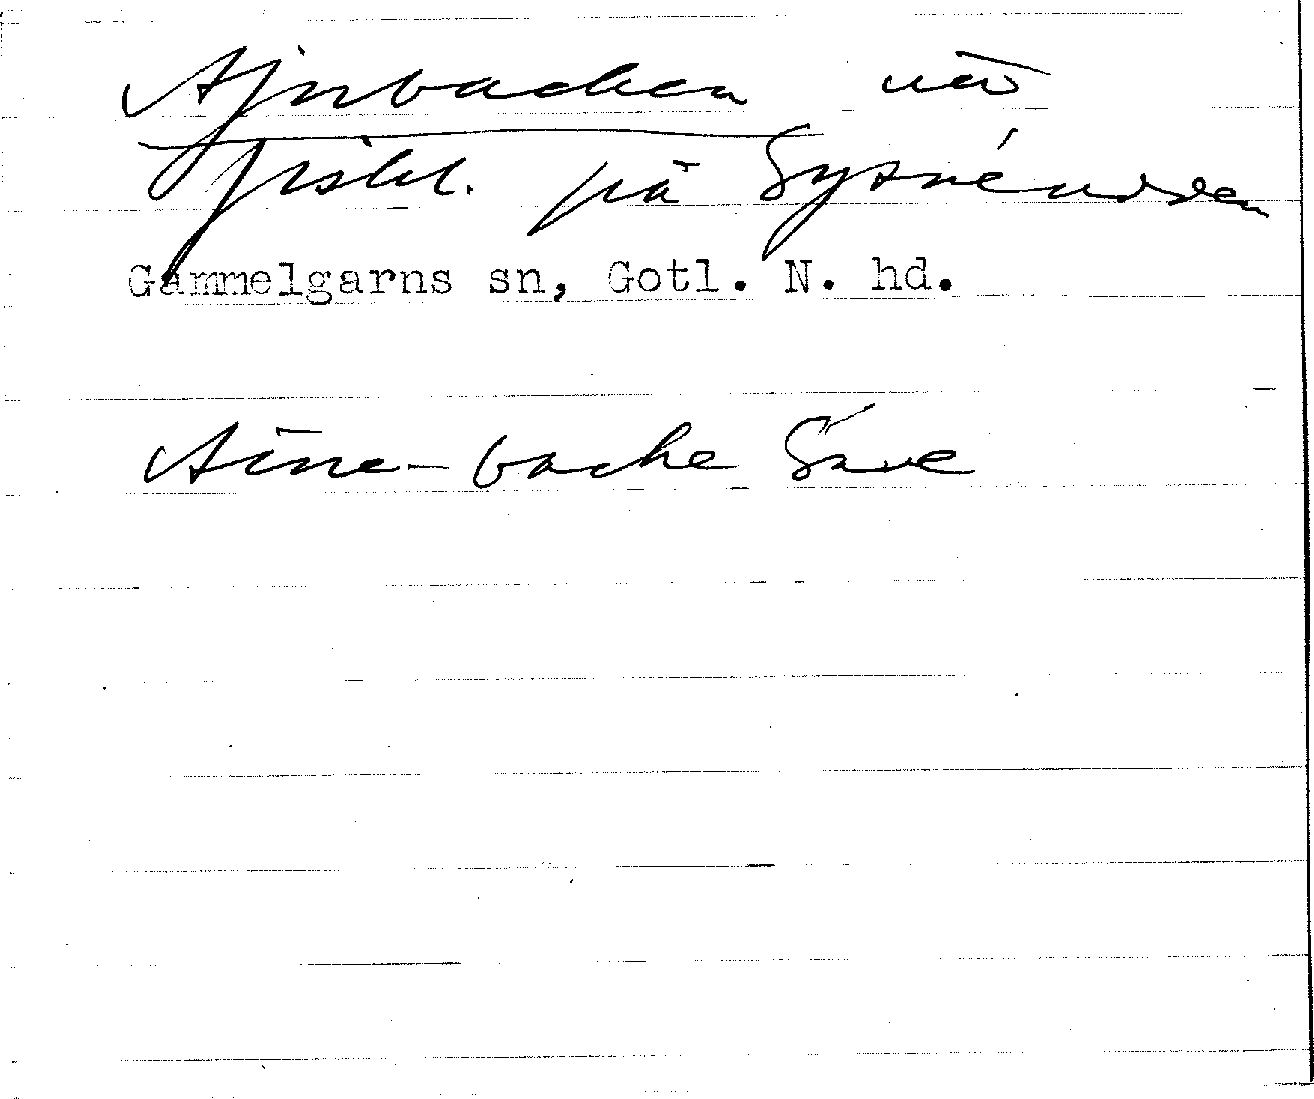 Ajnbacken vid
fiskl. på Sysnéudden
Gammelgarns sn, Gotl. N. hd.
Aine-backe Säve